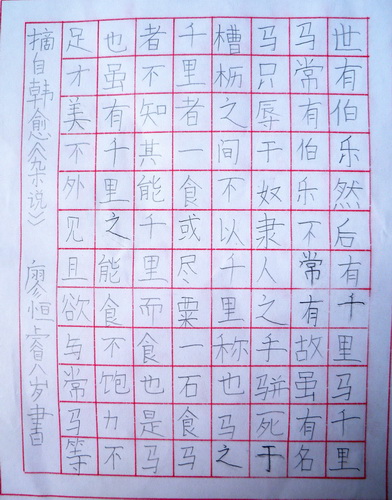 世有伯乐然后有千里马千里
马常有伯乐不常有故虽有名
马只辱于奴隶人之手骈死于
槽枥之间不以千里称也马之
千里者一食或尽粟一石食马
者不知其能千里而食也是马
也虽有千里之能食不饱力不
足才美不外见且欲与常马等
摘自韩愈《杂说》 廖恒睿八岁書